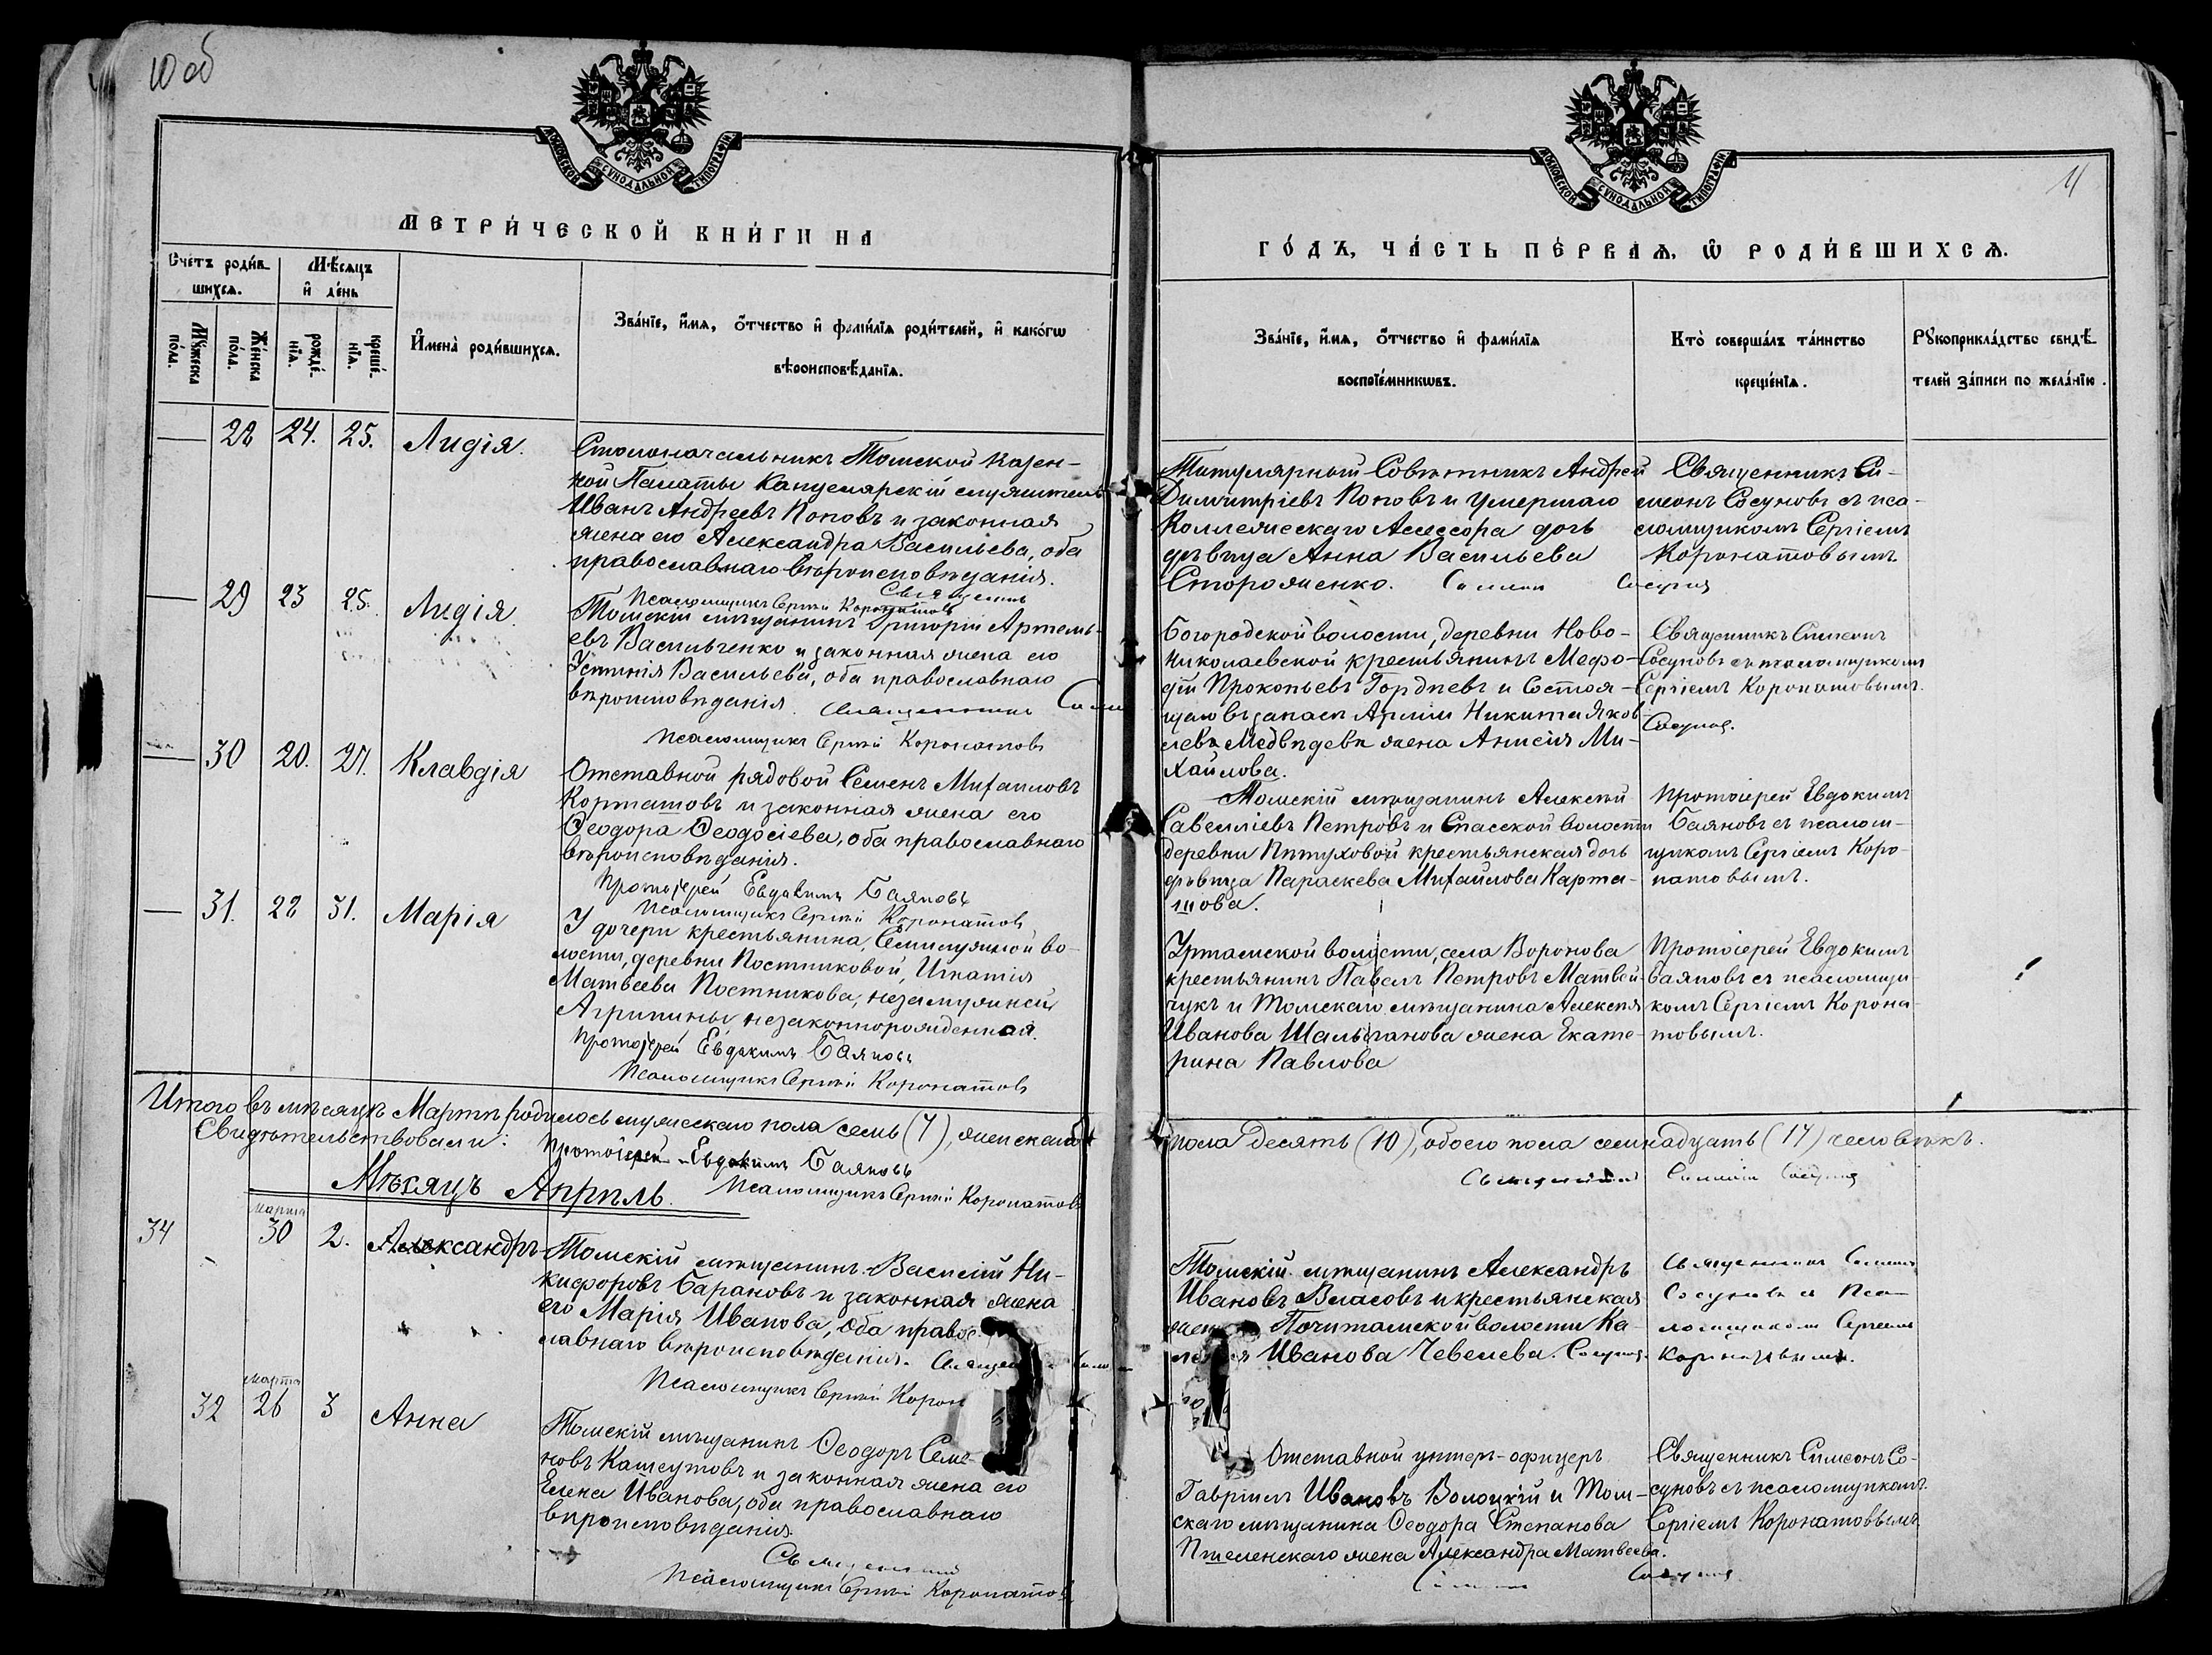 10 об
МОСКОВСКОЙ СѴНОДАЛЬНОЙ ТИПОГРАФІИ
МЕТРИ́ЧЕСКОЙ КНИ́ГИ НА
Сче́тъ роди́в-
шихся.
Мѣ́сяцъ
и҆ де́нь
Мꙋ́жеска по́ла.
Же́нска по́ла.
рожде́-
нїѧ.
креще́-
нїѧ.
И҆мена̀ роди́вшихсѧ.
Зва́нїе, и҆́мѧ, ѻ҆́тчество и҆ фами́лїѧ роди́телей, и҆ како́гѡ
вѣроисповѣ́данїѧ.
28 24. 25. Лидія.
Столоначальникъ Томской Казен-
ной Палаты Канцелярскій служитель
Иванъ Андреевъ Поповъ и законная
жена его Александра Васильева, оба
православнаго вѣроисповѣданія.
Священникъ
Псаломщикъ Сергій Коронатовъ
29 23 25. Лидія.
Томскій мѣщанинъ Григорій Артемь-
евъ Васильченко и законная жена его
Устинія Васильева, оба православнаго
вѣроисповѣданія. Священникъ Сим
Псаломщикъ Сергій Коронатовъ
30 20. 27. Клавдія
Отставной рядовой Семенъ Михаиловъ
Карташовъ и законная жена его
Ѳеодора Ѳеодосіева, оба православнаго
вѣроисповѣданія.
Протоіерей Евдокимъ Баяновъ
Псаломщикъ Сергій Коронатовъ
31. 28 31. Марія
У дочери крестьянина, Семилужной во-
лости, деревни Постниковой, Игнатія
Матвѣева Постникова, незамужней
Агрипины незаконнорожденная.
Протоіерей Евдокимъ Баяновъ
Псаломщикъ Сергій Коронатовъ
Итого въ мѣсяцѣ Мартѣ родилось мужескаго пола семь (7), женскаго
Свидѣтельствовали:
Протоіерей Евдокимъ Баяновъ
Псаломщикъ Сергій Коронатовъ
Мѣсяцъ Апрѣль.
марта
34 30 2. Александръ
Томскій мѣщанинъ Василій Ни-
кифоровъ Барановъ и законная жена
его Марія Иванова, оба правос-
лавнаго вѣроисповѣданія.
Псаломщикъ Сергій Корон
марта
32 26 3 Анна
Томскій мѣщанинъ Ѳеодоръ Семе-
новъ и законная жена его
Елена Иванова, оба православнаго
вѣроисповѣданія.
Священникъ
Псаломщикъ Сергій Коронатовъ
11
МОСКОВСКОЙ СѴНОДАЛЬНОЙ ТИПОГРАФІИ
ГО́ДЪ, ЧА́СТЬ ПЕ́РВАѦ, Ѽ РОДИ́ВШИХСѦ.
Зва́нїе, и҆́мѧ, ѻ҆́тчество и҆ фами́лїѧ
воспрїе́мникѡвъ.
Кто̀ соверша́лъ та́инство
креще́нїѧ.
Рꙋкоприкла́дство свидѣ́-
телей за́писи по жела́нїю.
Титулярный Совѣтникъ Андрей
Димитріевъ Поповъ и умершаго
Коллежскаго Ассесора дочь
дѣвица Анна Васильева
Стороженко. Симеонъ Сосуновъ
Священникъ Си-
меонъ Сосуновъ съ пса-
ломщикомъ Сергіемъ
Коронатовымъ.
Богородской волости, деревни Ново-
николаевской крестьянинъ Мефо-
дій Прокопьевъ Гордѣевъ и Состоя-
щаго въ запасѣ Арміи Никита Яков-
лева Медвѣдева жена Анисія Ми-
хайлова.
Священникъ Симеонъ
Сосуновъ съ псаломщикомъ
Сергіемъ Коронатовымъ.
Сосуновъ.
Томскій мѣщанинъ Алексѣй
Савелліевъ Петровъ и Спасской волости
деревни Пѣтуховой крестьянская дочь
дѣвица Параскева Михайлова Карта-
шова.
Протоіерей Евдокимъ
Баяновъ съ псалом-
щикомъ Сергіемъ Коро-
натовымъ.
Уртамской волости, села Воронова
крестьянинъ Павелъ Петровъ Матвей-
чукъ и Томскаго мѣщанина Алексѣя
Иванова Шалыганова жена Екате-
рина Павлова
Протоіерей Евдокимъ
Баяновъ съ псаломщи-
комъ Сергіемъ Корона-
товымъ.
пола десять (10), обоего пола семнадцать (17) человѣкъ.
Священникъ Симеонъ Сосуновъ
Томскій мѣщанинъ Александръ
Ивановъ Власовъ и крестьянская
Почитамской волости Ка-
Иванова Чевелева. Сосуновъ.
Священникъ Симеонъ
Сосуновъ съ Пса-
ломщикомъ Сергіемъ
Коронатовымъ.
Отставной унтеръ-офицеръ
Гавріилъ Ивановъ Волоцкій и Том-
скаго мѣщанина Ѳеодора Степанова
Пшеленскаго жена Александра Матвеева.
Симеонъ Сосуновъ
Священникъ Симеонъ Со-
суновъ съ псаломщикомъ
Сергіемъ Коронатовымъ.